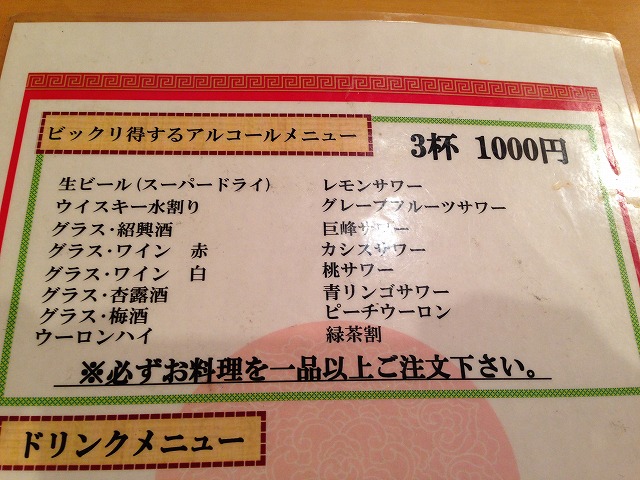 ビックリ得するアルコールメニュー
3杯 1000円
生ビール(スーパードライ)
ウイスキー水割り
グラス・紹興酒
グラス・ワイン 赤
グラス・ワイン 白
グラス・杏露酒
グラス・梅酒
ウーロンハイ
レモンサワー
グレープフルーツサワー
巨峰サワー
カシスサワー
桃サワー
青リンゴサワー
ピーチウーロン
緑茶割
※必ずお料理を一品以上ご注文下さい。
ドリンクメニュー